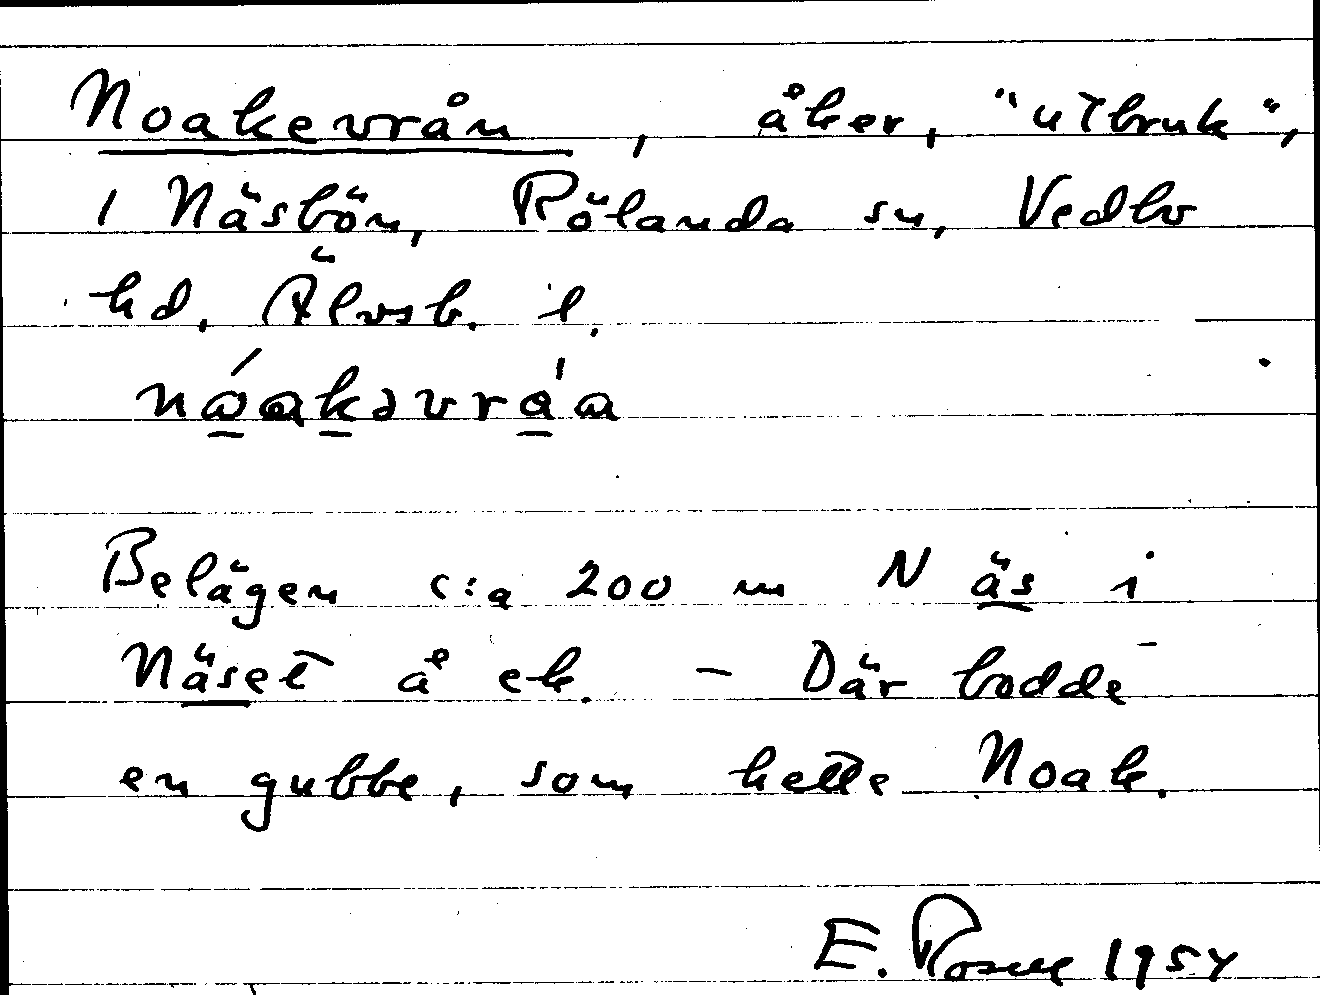 Noakevrån, åker, "utbruk",
i Näsbön, Rölanda sn, Vedbo
hd, Älvsb. l.
nóakəvráa
Belägen c:a 200 m N äs i
Näset å ek. - Där bodde
en gubbe, som hette Noak.
E. 1954